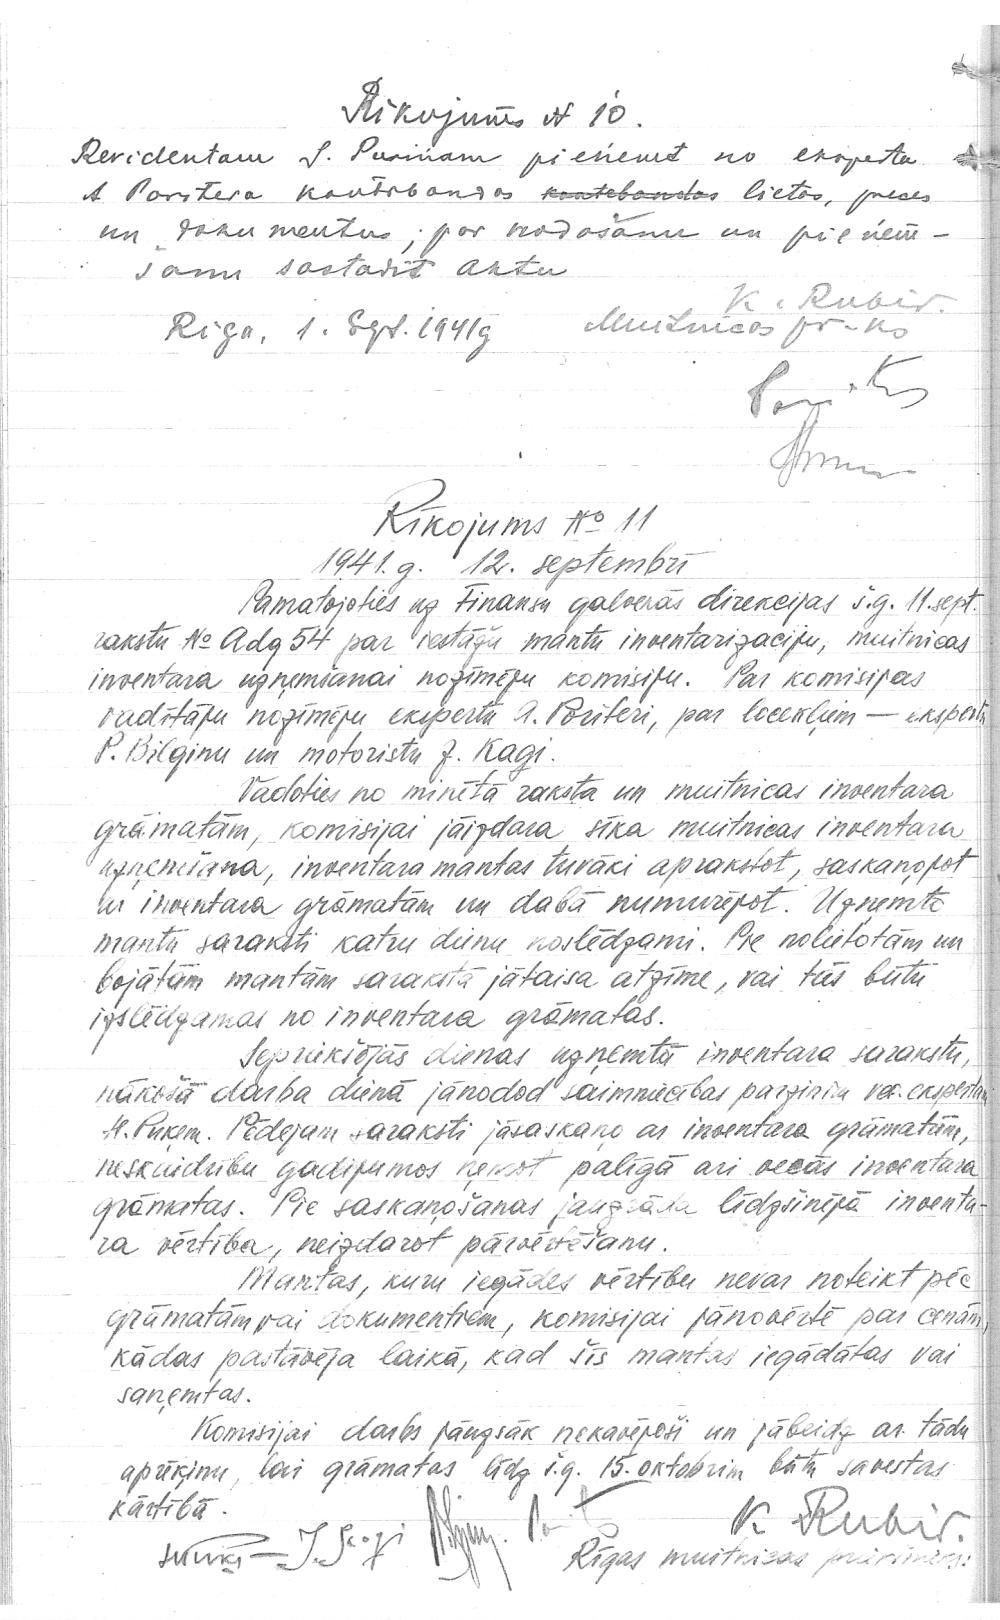 Rīkojums № 10.
Revidentam J. Puriņam pieņemt no eksperta
A Poritera kontrabandas kontrebandas lietas, preces
un dokumentus, par nodošanu un pieņem-
šanu sastādīt aktu
K. Rubir.
Rīga, 1. Sept. 1941g Muitnīcas pr-ks
Rīkojums № 11
1941. g. 12. septembrī
Pamatojoties uz Finansu galvenās direkcijas š.g. 11. sept.
rakstu № Adg 54 par iestāžu mantu inventarizaciju, muitnicas
inventara uzņemšanai nozīmēju komisiju. Par komisijas
vadītāju nozīmēju ekspertu A. Poriteri, par locekļiem — ekspertu
P. Bilginu un motoristu J. Kagi.
Vadoties no minētā raksta un muitnicas inventara
grāmatām, komisijai jāizdara sīka muitnicas inventara
uzņemšana, inventara mantas tuvāki aprakstot, saskaņojot
ar inventara grāmatām un dabā numurējot. Uzņemtā
mantu saraksti katru dienu noslēdzami. Pie nolietotām un
bojātām mantām sarakstā jātaisa atzīme, vai tās būtu
izslēdzamas no inventara grāmatas.
Iepriekšējās dienas uzņemtā inventara sarakstu,
nākošā darba dienā jānodod saimniecības parzinim vec. ekspertam
H. Puķem. Pēdejam saraksti jāsaskaņo ar inventara grāmatām,
neskaidrību gadijumos ņemot palīgā ari vecās inventara
grāmatas. Pie saskaņošanas jāuzrāda līdzšinējā inventa-
ra vērtība, neizdarot pārvērtēšanu.
Mantas, kuru iegādes vērtību nevar noteikt pēc
grāmatām vai dokumentiem, komisijai jānovērtē par cenām,
kādas pastāvēja laikā, kad šīs mantas iegādātas vai
saņemtas.
Komisijai darbs jāuzsāk nekavējoši un jābeidz ar tādu
aprēķinu, lai grāmatas līdz š.g. 15. oktobrim būtu savestas
kārtībā.
K. Rubir.
Rīgas muitnicas priekšnieks